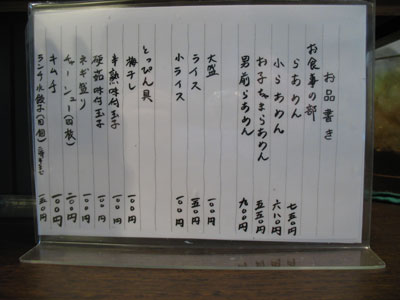 お品書き
お食事の部
らあめん 七五〇円
小らあめん 六八〇円
お子ちまらあめん 五五〇円
男前らあめん 九〇〇円
大盛 一〇〇円
ライス 一五〇円
小ライス 一〇〇円
とっぴん具
梅干し 一〇〇円
半熟味付玉子 一〇〇円
硬茹味付玉子 一〇〇円
ネギ盛り 一〇〇円
チャーシュー(四枚) 二〇〇円
キムチ 一〇〇円
ランチ水餃子(四個) 一五〇円